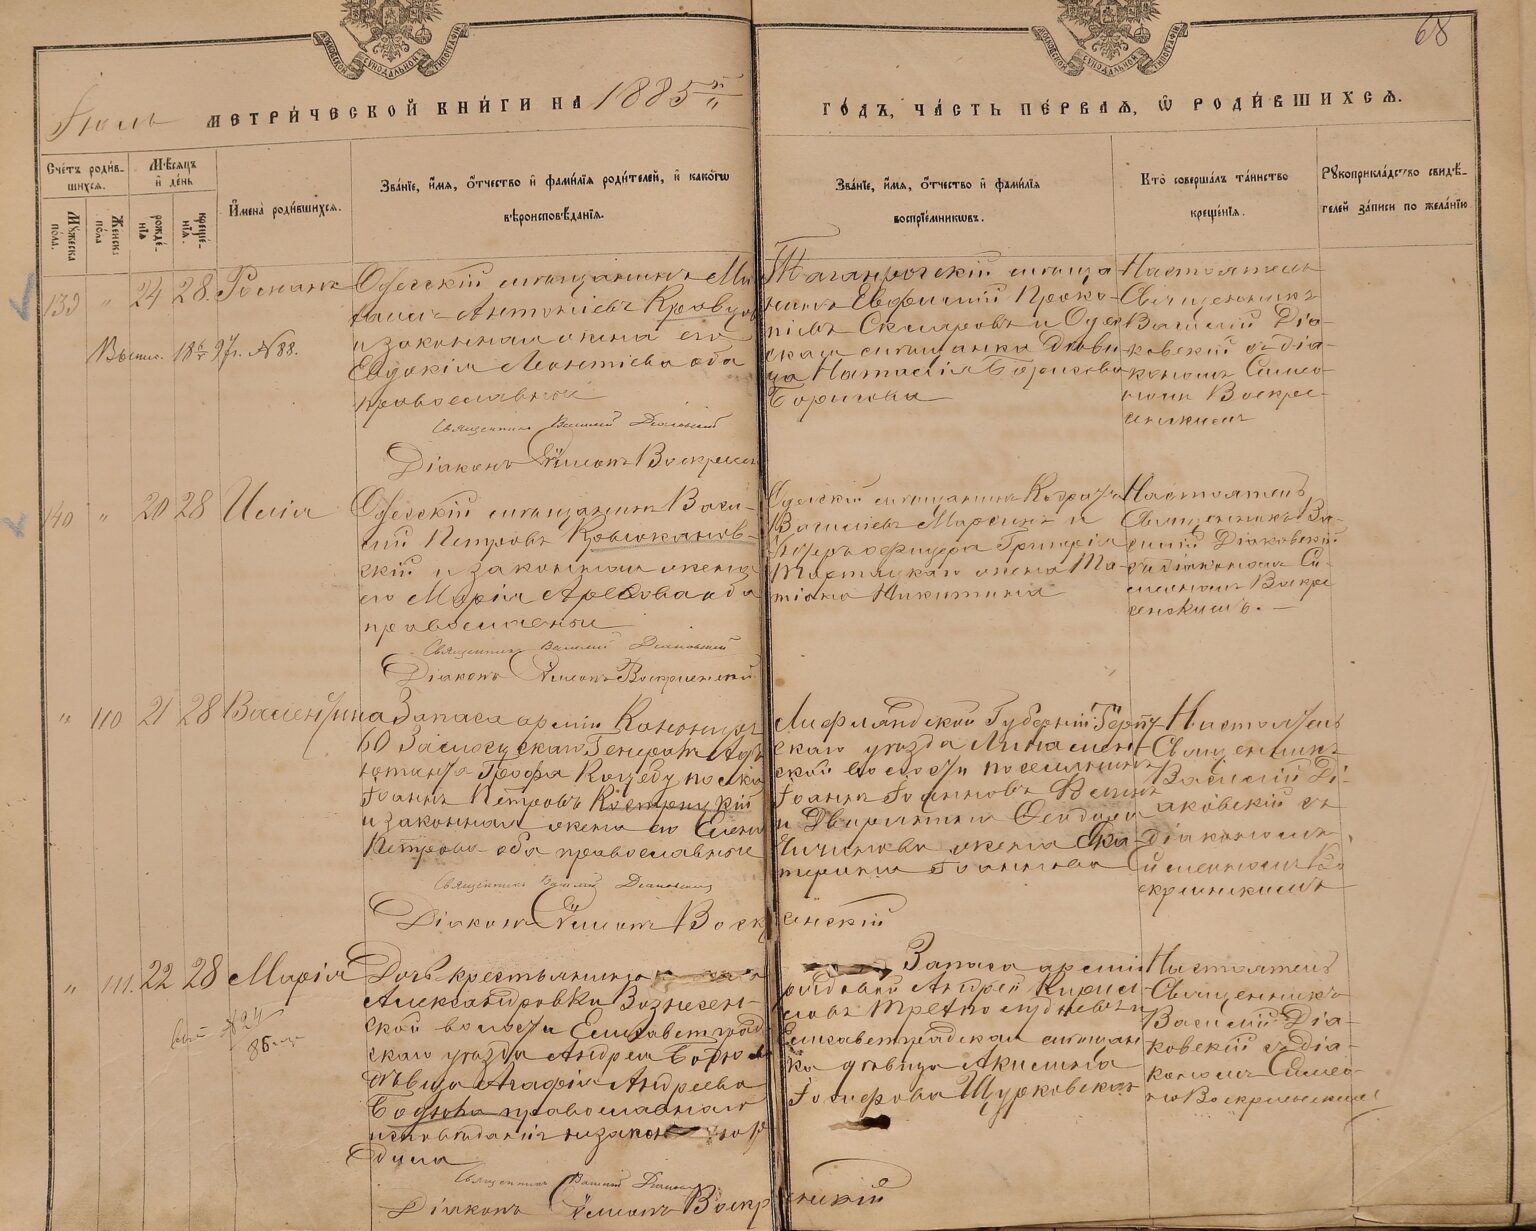 68
Іюль МЕТРИ́ЧЕСКОЙ КНИ́ГИ НА 1885 ГО́ДЪ, ЧА́СТЬ ПЕ́РВАЯ, Ѿ РОДИ́ВШИХСѦ.
Сче́тъ роди́в-
шихся.
Мѣсяцъ
и де́нь
Му́жеска по́ла.
Же́нска по́ла
рожде́-
нїя
креще́-
нїя.
И҆мена̀ роди́вшихся.
Зва́нїе, и҆мя, ѻ҆́тчество и҆ фами́лїя роди́телей, и҆ како́гѡ
вѣроисповѣ́данїя.
Зва́нїе, и҆мя, ѻ҆́тчество и҆ фами́лїя
воспрїе́мникѡвъ.
Кто̀ соверша́лъ та́инство
креще́нїя.
Рꙋкоприкла́дство свидѣ́-
телей за́писи по жела́нїю
139 " 24 28. Романъ
Выпис. №88.
Одесскій мѣщанинъ Ми-
хаилъ Антоніевъ Кравцовъ
и законная жена его
Евдокія Леонтіева оба
православные
Священникъ Василій Діаковскій
Діаконъ Симеонъ Воскресен
Таганрогскій мѣща-
нинъ Евфимій Проко-
піевъ Скляровъ и Одес-
ская мѣщанка дѣви-
ца Наталія Борисова
Борисова
Настоятель
Священникъ
Василій Діа-
ковскій съ діа-
кономъ Симео-
номъ Воскре-
сенскимъ
140 " 20 28 Илія
Одесскій мѣщанинъ Васи-
лій Петровъ Крыжанов-
скій и законная жена
его Марія оба
православные
Священникъ Василій Діаковскій
Діаконъ Симеонъ Воскресенскій
Одесскій мѣщанинъ
Василіевъ и
Унтеръ-офицера Григорія
жена Та-
тіана Никитина
Настоятель
Священникъ Ва-
силій Діаковскій
съ діакономъ Си-
меономъ Воскре-
сенскимъ.
" 110 21 28 Валентина
Запаса арміи Канониръ
60 Замосцскаго Генералъ Адъ-
ютанта Графа Коцебу полка
Іоаннъ Петровъ Кострицкій
и законная жена его Елена
Петрова оба православные
Священникъ Василій Діаковскій
Діаконъ Симеонъ Воскресенскій
Лифляндской Губерніи
скаго уѣзда
ской волости поселянинъ
Іоаннъ Іоанновъ
и Дворянина Ѳеодора
жена Ека-
терина Іоаннова
Настоятель
Священникъ
Василій Ді-
аковскій съ
діакономъ
Симеономъ Во-
скресенскимъ
" 111. 22 28 Марія
№24
86
Дочь крестьянина
Александровки Вознесен-
ской волости Елисаветград-
скаго уѣзда Андрея
дѣвица Агафія Андреева
православнаго
исповѣданія незакон
дила
Священникъ Василій Діаковскій
Діаконъ Симеонъ Воскресенскій
Запаса арміи
рядовой Андрей Кирил-
ловъ
Елисаветградская мѣщан-
ка дѣвица Акилина
Іосифова Щурковская
Настоятель
Священникъ
Василій Діа-
ковскій съ діа-
кономъ Симео-
номъ Воскресенскимъ